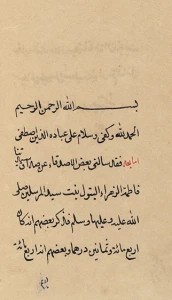 بسم الله الرحمن الرحيم
الحمد لله وكفى وسلام على عباده الذين اصطفى
اما بعد فقد سالنى بعض الاصدقاء عن صداق
فاطمة الزهراء البتول بنت سيد المرسلين صلى
الله عليه وعليها وسلم فذكر بعضهم انه كان
اربع مائة وثمانين درهما وبعضهم انه اربع مائة